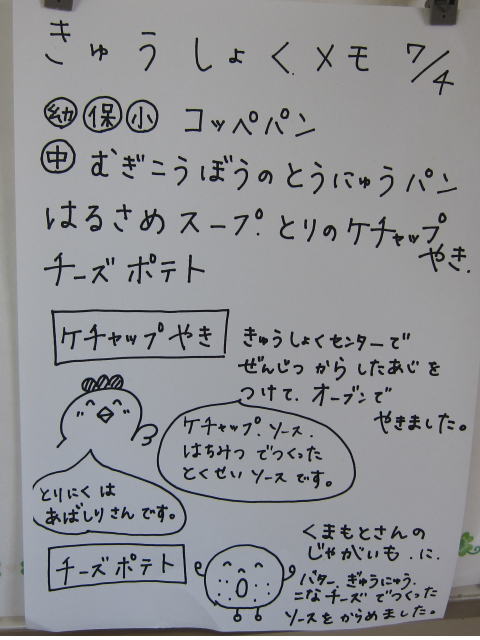 きゅうしょくメモ 7/4
幼 保 小 コッペパン
中 むぎこうぼうのとうにゅうパン
はるさめスープ. とりのケチャップ
やき.
チーズポテト
ケチャップやき
きゅうしょくセンターで
ぜんじつからしたあじを
つけて. オーブンで
やきました。
ケチャップ. ソース.
はちみつでつくった
とくせいソースです。
とりにくは
あばしりさんです。
チーズポテト
くまもとさんの
じゃがいも.に.
バター. ぎゅうにゅう.
こなチーズでつくった
ソースをからめました。